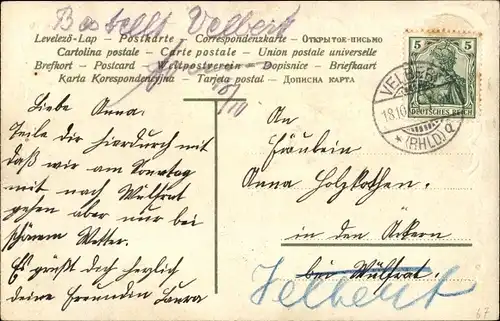 Bestellt Velbert
Levelező-Lap – Postkarte – Correspondenzkarte – Открытое-письмо
Cartolina postale – Carte postale – Union postale universelle
Brefkort – Postcard – Weltpostverein – Dopisnice – Briefkaart
Karta Korespondencyjna – Tarjeta postal – Дописна карта
18/10
5 5
DEUTSCHES REICH
VELBERT
18.10
* (RHLD.) a
Liebe Anna.
Teile dir hierdurch mit
daß wir am Sonntag
mit nach Wülfrat
gehen aber nur bei
schönem Wetter.
Es grüßt dich herzlich
deine Freundin Laura
An
Fräulein
Anna Holzkothen.
in den Äckern
bei Wülfrat.
Velbert
67